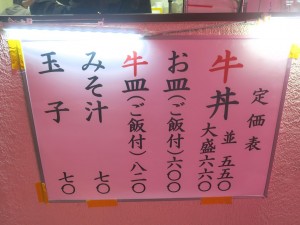 定価表
牛丼 並 五五〇
大盛 六六〇
お皿(ご飯付)六〇〇
牛皿(ご飯付)八二〇
みそ汁 七〇
玉子 七〇